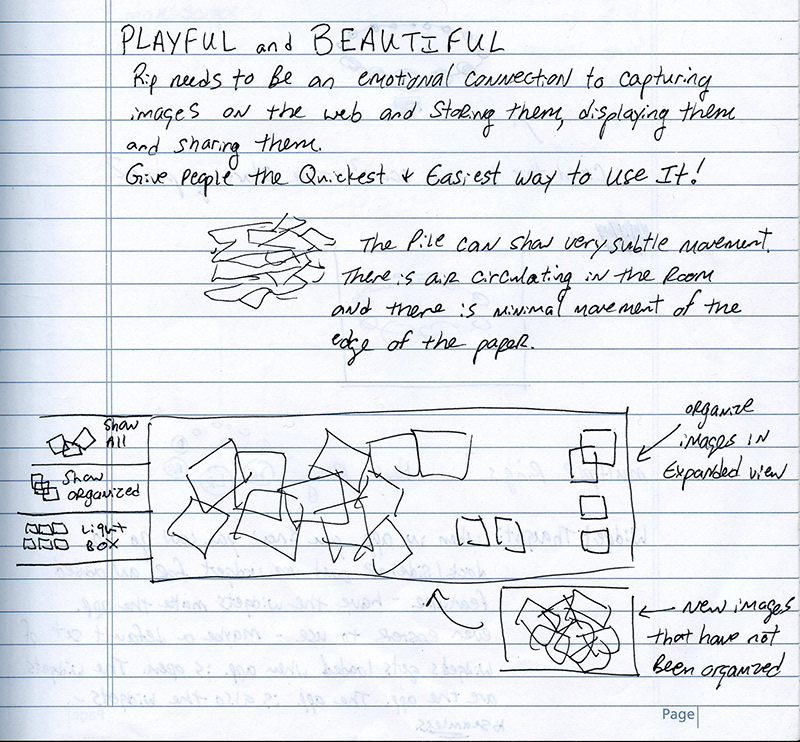 PLAYFUL and BEAUTIFUL
Rip needs to Be an emotional connection to capturing
images on the web and storing them, displaying them
and sharing them.
Give People the Quickest & Easiest way to Use It!
The Pile can show very subtle movement.
There is air circulating in the room
and there is minimal movement of the
edge of the paper.
Show
All
Show
organized
Light
Box
organize
images in
Expanded view
New images
that have not
Been organized
Page